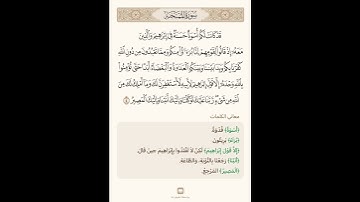 سُورَةُ المُمْتَحنَةِ
قَدْ كَانَتْ لَكُمْ أُسْوَةٌ حَسَنَةٌ فِي إِبْرَاهِيمَ وَالَّذِينَ
مَعَهُ إِذْ قَالُوا لِقَوْمِهِمْ إِنَّا بُرَءَاؤُا مِنكُمْ وَمِمَّا تَعْبُدُونَ مِن دُونِ اللَّهِ
كَفَرْنَا بِكُمْ وَبَدَا بَيْنَنَا وَبَيْنَكُمُ الْعَدَاوَةُ وَالْبَغْضَاءُ أَبَدًا حَتَّى تُؤْمِنُوا
بِاللَّهِ وَحْدَهُ إِلَّا قَوْلَ إِبْرَاهِيمَ لِأَبِيهِ لَأَسْتَغْفِرَنَّ لَكَ وَمَا أَمْلِكُ لَكَ مِنَ
اللَّهِ مِن شَيْءٍ رَّبَّنَا عَلَيْكَ تَوَكَّلْنَا وَإِلَيْكَ أَنَبْنَا وَإِلَيْكَ الْمَصِيرُ ٤
معاني الكلمات
﴿أُسْوَةٌ﴾ قُدْوَةٌ.
﴿بُرَءَاءُ﴾ بَرِيئُونَ.
﴿إِلَّا قَوْلَ إِبْرَاهِيمَ﴾ لَكِنْ لَا تَقْتَدُوا بِإِبْرَاهِيمَ حِينَ قَالَ.
﴿أَنَبْنَا﴾ رَجَعْنَا بِالتَّوْبَةِ، وَالطَّاعَةِ.
﴿الْمَصِيرُ﴾ المَرْجِعُ.